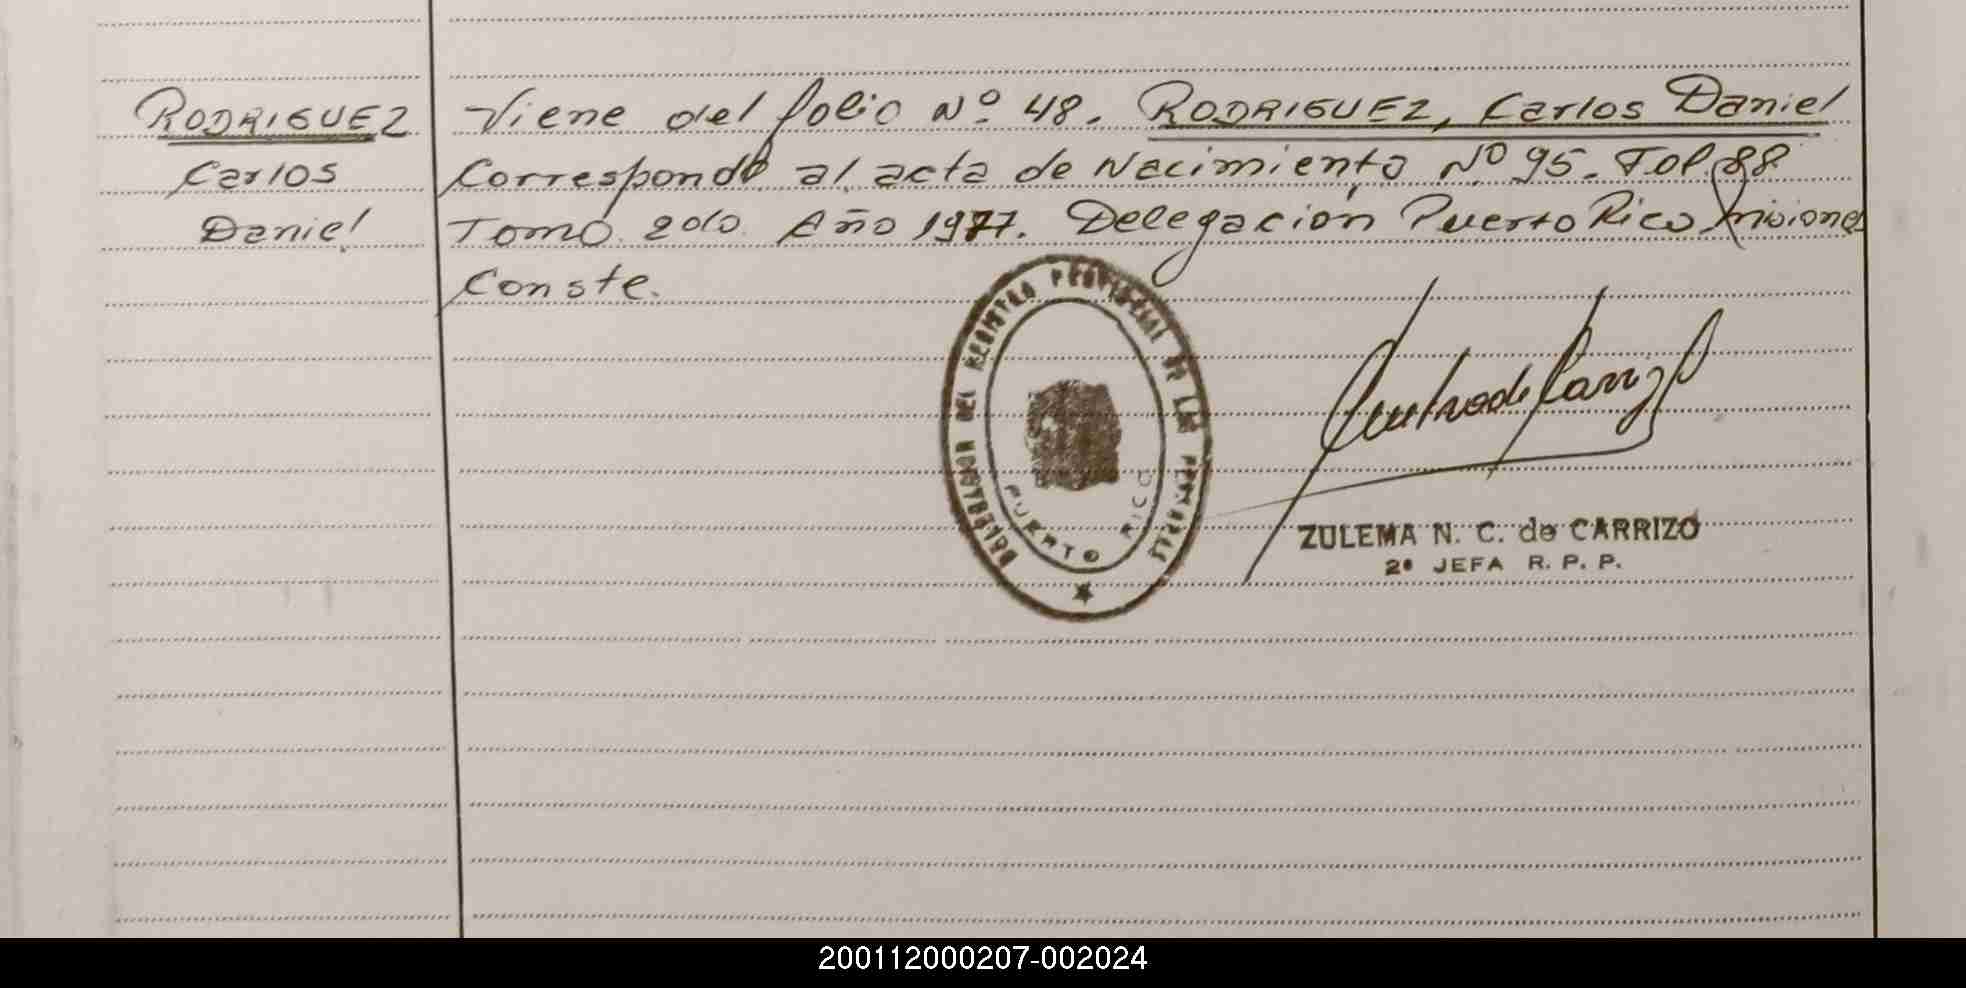 RODRIGUEZ
Carlos
Daniel
Viene del folio Nº 48. RODRIGUEZ, Carlos Daniel
Corresponde al acta de Nacimiento Nº 95. Fol. 88
Tomo 2do. Año 1977. Delegación Puerto Rico Misiones
Conste.
DELEGACION DEL REGISTRO PROVINCIAL DE LAS PERSONAS
PUERTO RICO
ZULEMA N. C. de CARRIZO
2º JEFA R. P. P.
200112000207-002024